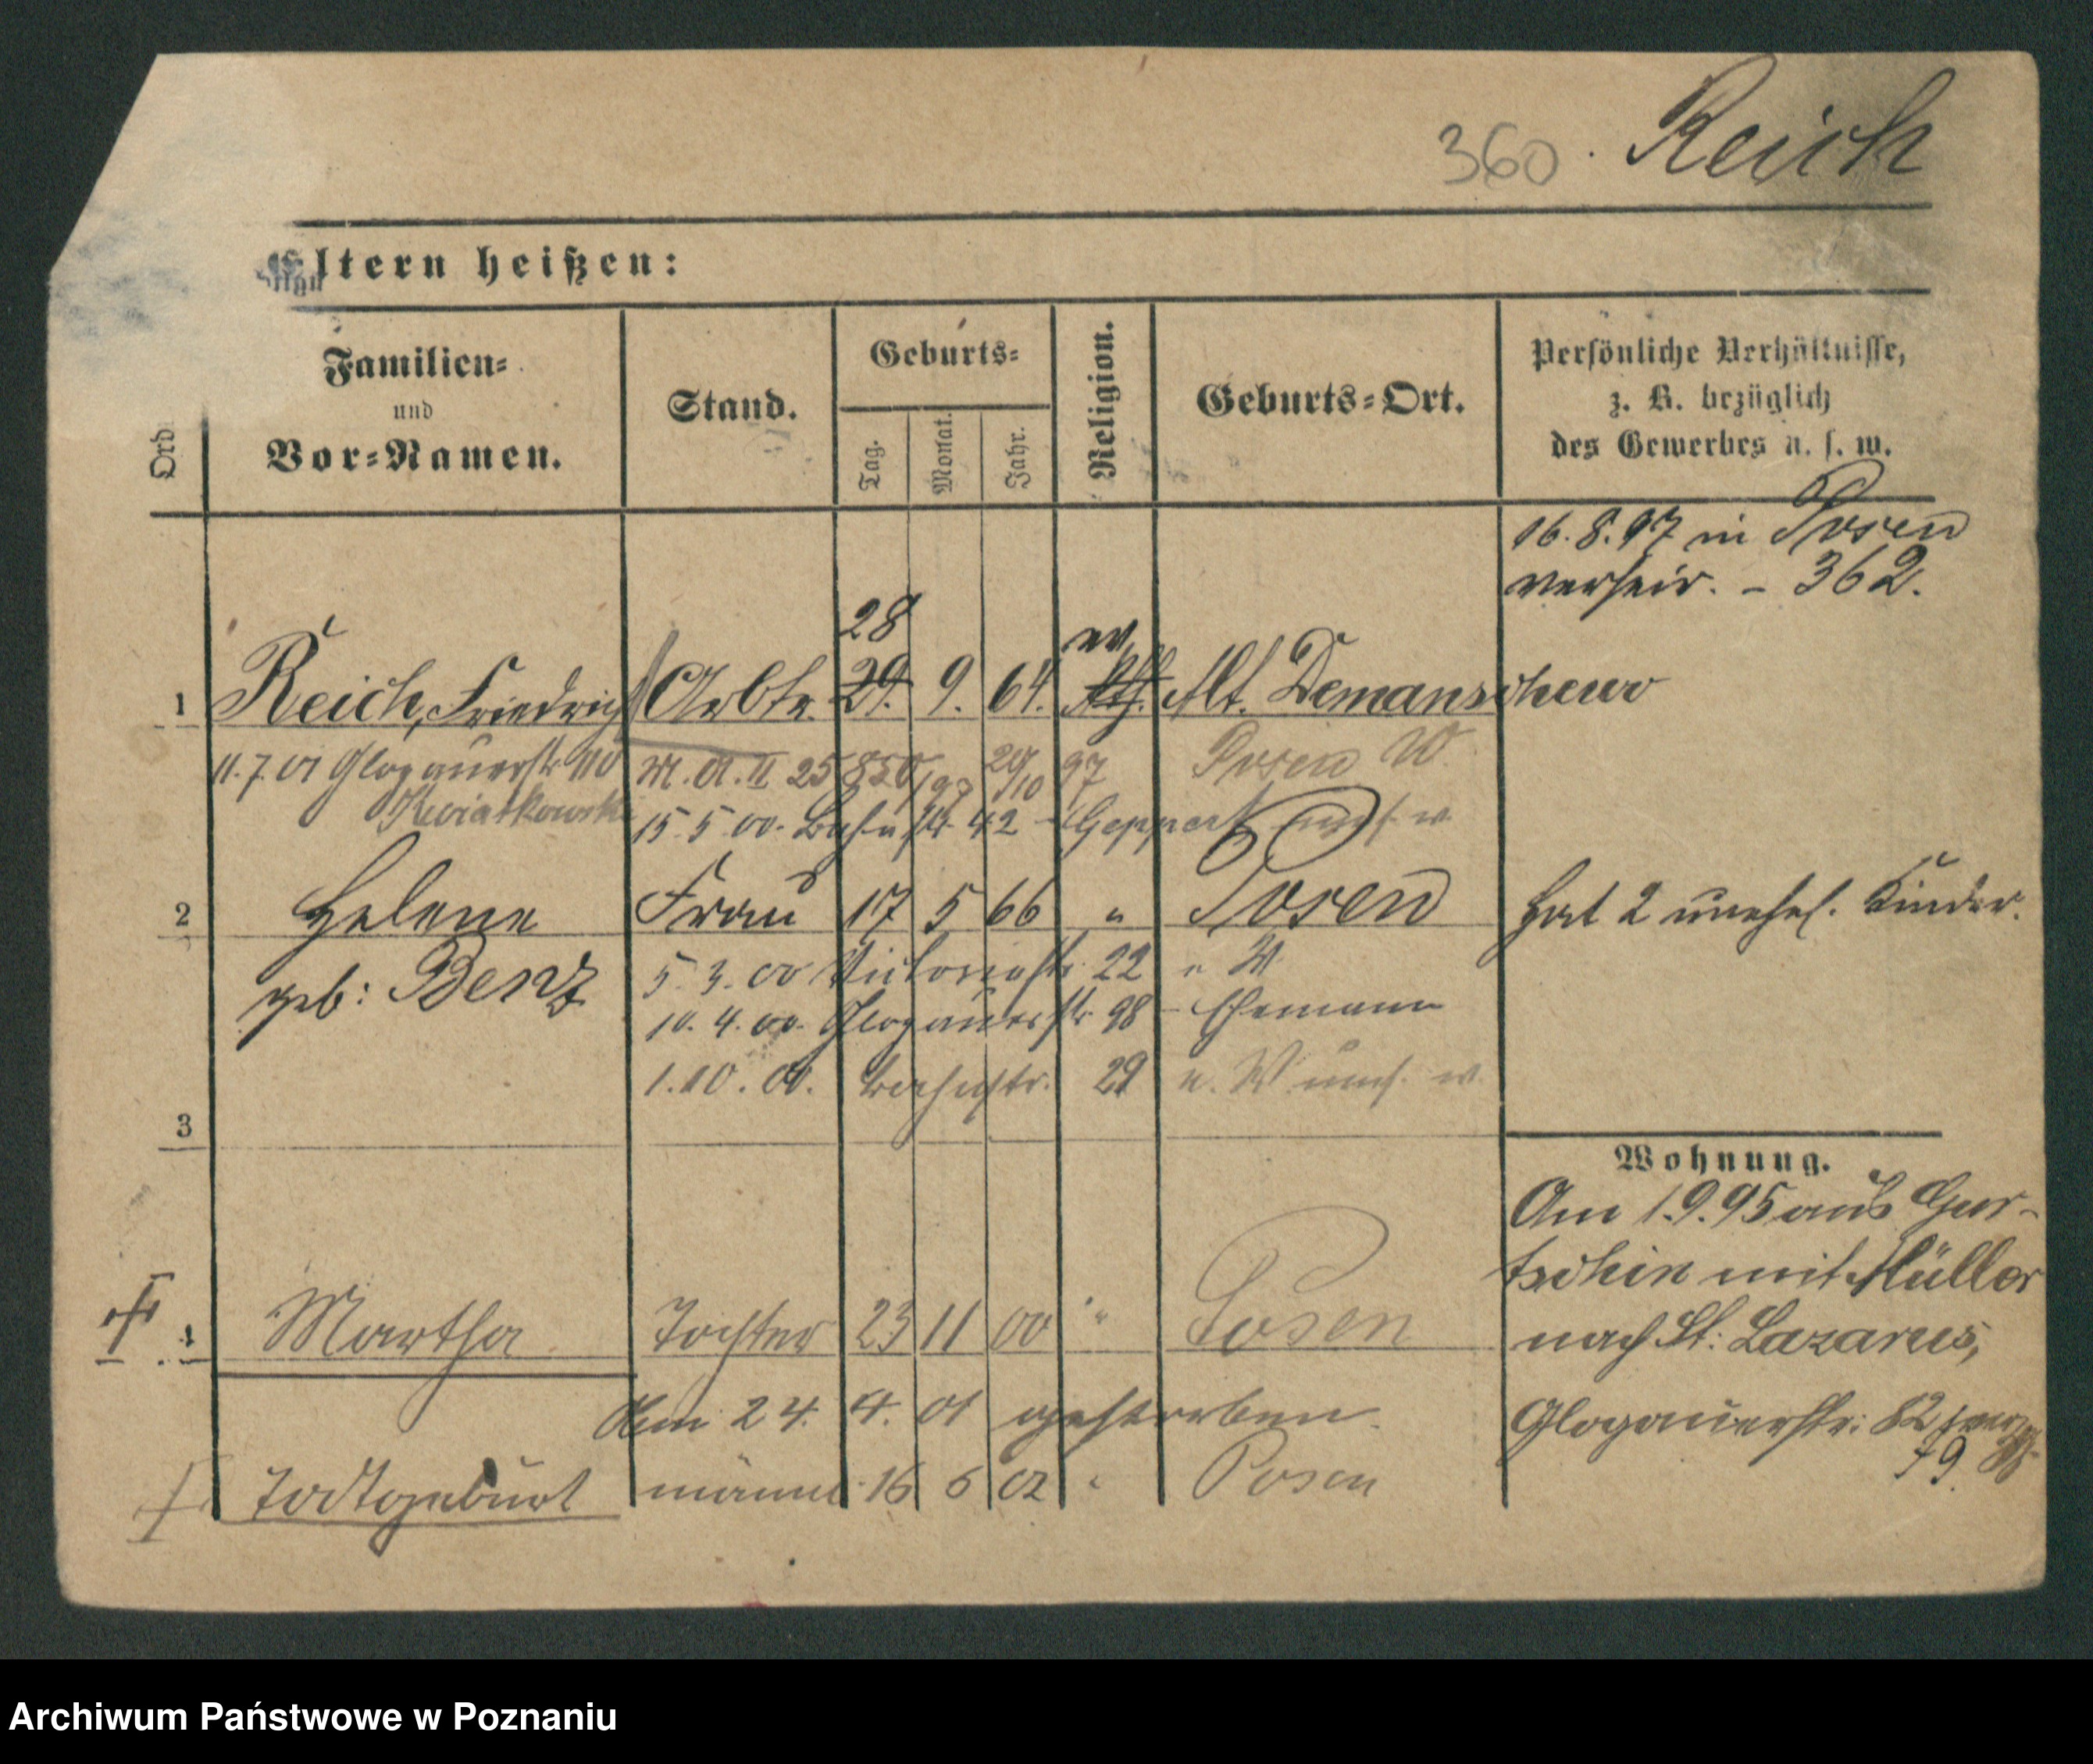 360. Reich
Eltern heißen:
Ord.
Familien-
und
Vor-Namen.
Stand.
Geburts-
Tag.
Monat.
Jahr.
Religion.
Geburts-Ort.
Persönliche Verhältnisse,
z. B. bezüglich
des Gewerbes u. s. w.
16.8.97 in Posen
verheir. - 362.
28 ev
1 Reich, Friedrich Arbtr. 29. 9. 64. kth. Alt. Demanscheur
11.7.01 Glogauerstr 110 M. A. II 25850/97 29/10 97 Posen W.
Kwiatkowski 15. 5. 00. Bahnstr 42 - Geppert
2 Helene Frau 17 5 66 " Posen Hat 2 unehel. Kinder.
geb: Benz 5. 3. 00 Victoriastr. 22 W
10. 4. 00. Glogauerstr. 98 - Ehemann
1. 10. 00. Bahnstr. 29
3
Wohnung.
Am 1.9.95 aus Gur-
tschin mit Müller
nach St: Lazarus,
Glogauerstr: 82
79.
† 4 Martha Tochter 23 11 00 " Posen
Am 24. 4. 01 gestorben.
† Todtgeburt männl. 16 6 02 " Posen
Archiwum Państwowe w Poznaniu